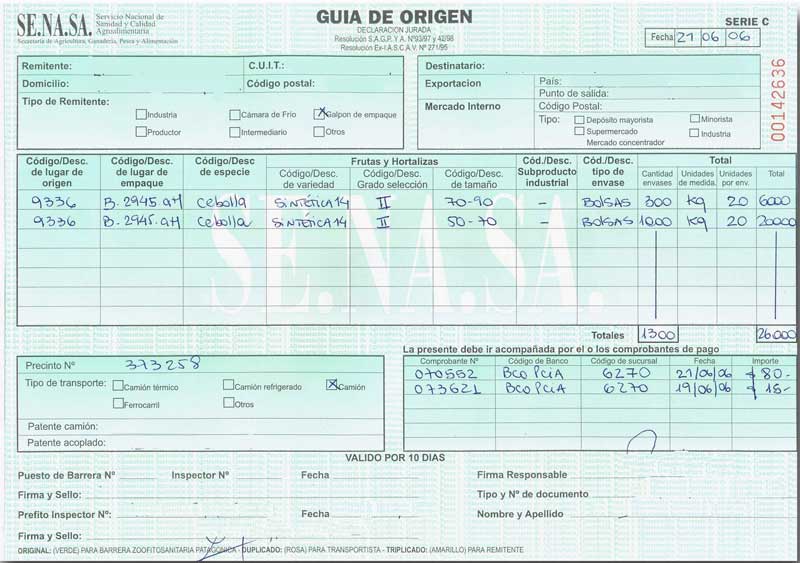 SE.NA.SA. Servicio Nacional de Sanidad y Calidad Agroalimentaria
Secretaría de Agricultura, Ganadería, Pesca y Alimentación
GUIA DE ORIGEN
DECLARACION JURADA
Resolución S.A.G.P. Y A. Nº93/97 y 42/98
Resolución Ex-I.A.S.C.A.V. Nº 271/95
SERIE C
Fecha 21 06 06
00142636
Remitente: C.U.I.T.:
Domicilio: Código postal:
Tipo de Remitente:
Industria Cámara de Frío X Galpon de empaque
Productor Intermediario Otros
Destinatario:
Exportacion País:
Punto de salida:
Mercado Interno Código Postal:
Tipo: Depósito mayorista Minorista
Supermercado Industria
Mercado concentrador
Código/Desc. de lugar de origen Código/Desc. de lugar de empaque Código/Desc de especie Frutas y Hortalizas Cód./Desc. Subproducto industrial Cód./Desc. tipo de envase Total
Código/Desc. de variedad Código/Desc. Grado selección Código/Desc. de tamaño Cantidad envases Unidades de medida. Unidades por env. Total
9336 B.2945.aH Cebolla SINTÉTICA 14 II 70-90 - BOLSAS 300 Kg 20 6000
9336 B.2945.aH Cebolla SINTÉTICA 14 II 50-70 - BOLSAS 1000 Kg 20 20000
SE.NA.SA.
Totales 1300 26000
La presente debe ir acompañada por el o los comprobantes de pago
Precinto Nº 373258
Tipo de transporte: Camión térmico Camión refrigerado X Camión
Ferrocarril Otros
Patente camión:
Patente acoplado:
Comprobante Nº Código de Banco Código de sucursal Fecha Importe
070552 BCO PCIA 6270 21/06/06 $ 80-
073621 BCO PCIA 6270 19/06/06 $ 15-
VALIDO POR 10 DIAS
Puesto de Barrera Nº Inspector Nº Fecha Firma Responsable
Firma y Sello: Tipo y Nº de documento
Prefito Inspector Nº: Fecha Nombre y Apellido
Firma y Sello:
ORIGINAL: (VERDE) PARA BARRERA ZOOFITOSANITARIA PATAGONICA - DUPLICADO: (ROSA) PARA TRANSPORTISTA - TRIPLICADO: (AMARILLO) PARA REMITENTE